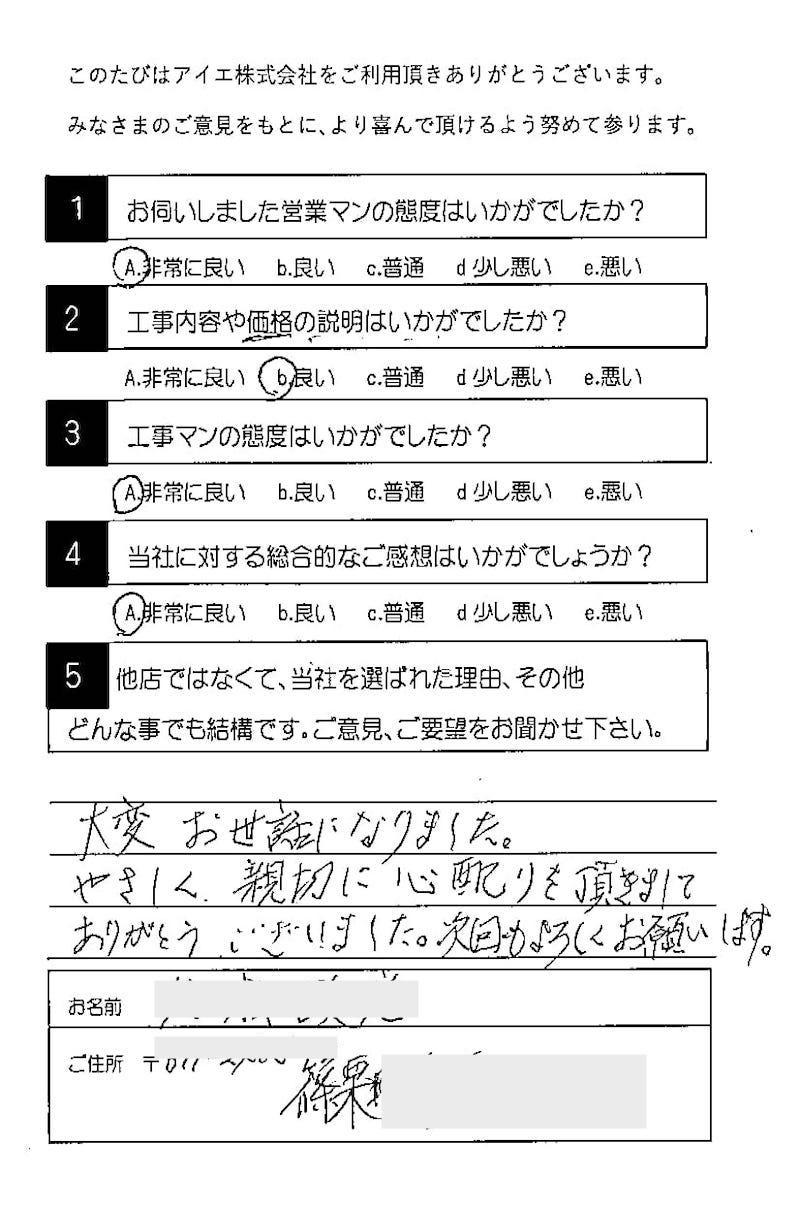 このたびはアイエ株式会社をご利用頂きありがとうございます。
みなさまのご意見をもとに、より喜んで頂けるよう努めて参ります。
1 お伺いしました営業マンの態度はいかがでしたか？
A.非常に良い b.良い c.普通 d 少し悪い e.悪い
2 工事内容や価格の説明はいかがでしたか？
A.非常に良い b.良い c.普通 d 少し悪い e.悪い
3 工事マンの態度はいかがでしたか？
A.非常に良い b.良い c.普通 d 少し悪い e.悪い
4 当社に対する総合的なご感想はいかがでしょうか？
A.非常に良い b.良い c.普通 d 少し悪い e.悪い
5 他店ではなくて、当社を選ばれた理由、その他
どんな事でも結構です。ご意見、ご要望をお聞かせ下さい。
大変 お世話になりました。
やさしく、親切に心配りを頂きまして
ありがとうございました。次回もよろしくお願いします。
お名前
ご住所 〒